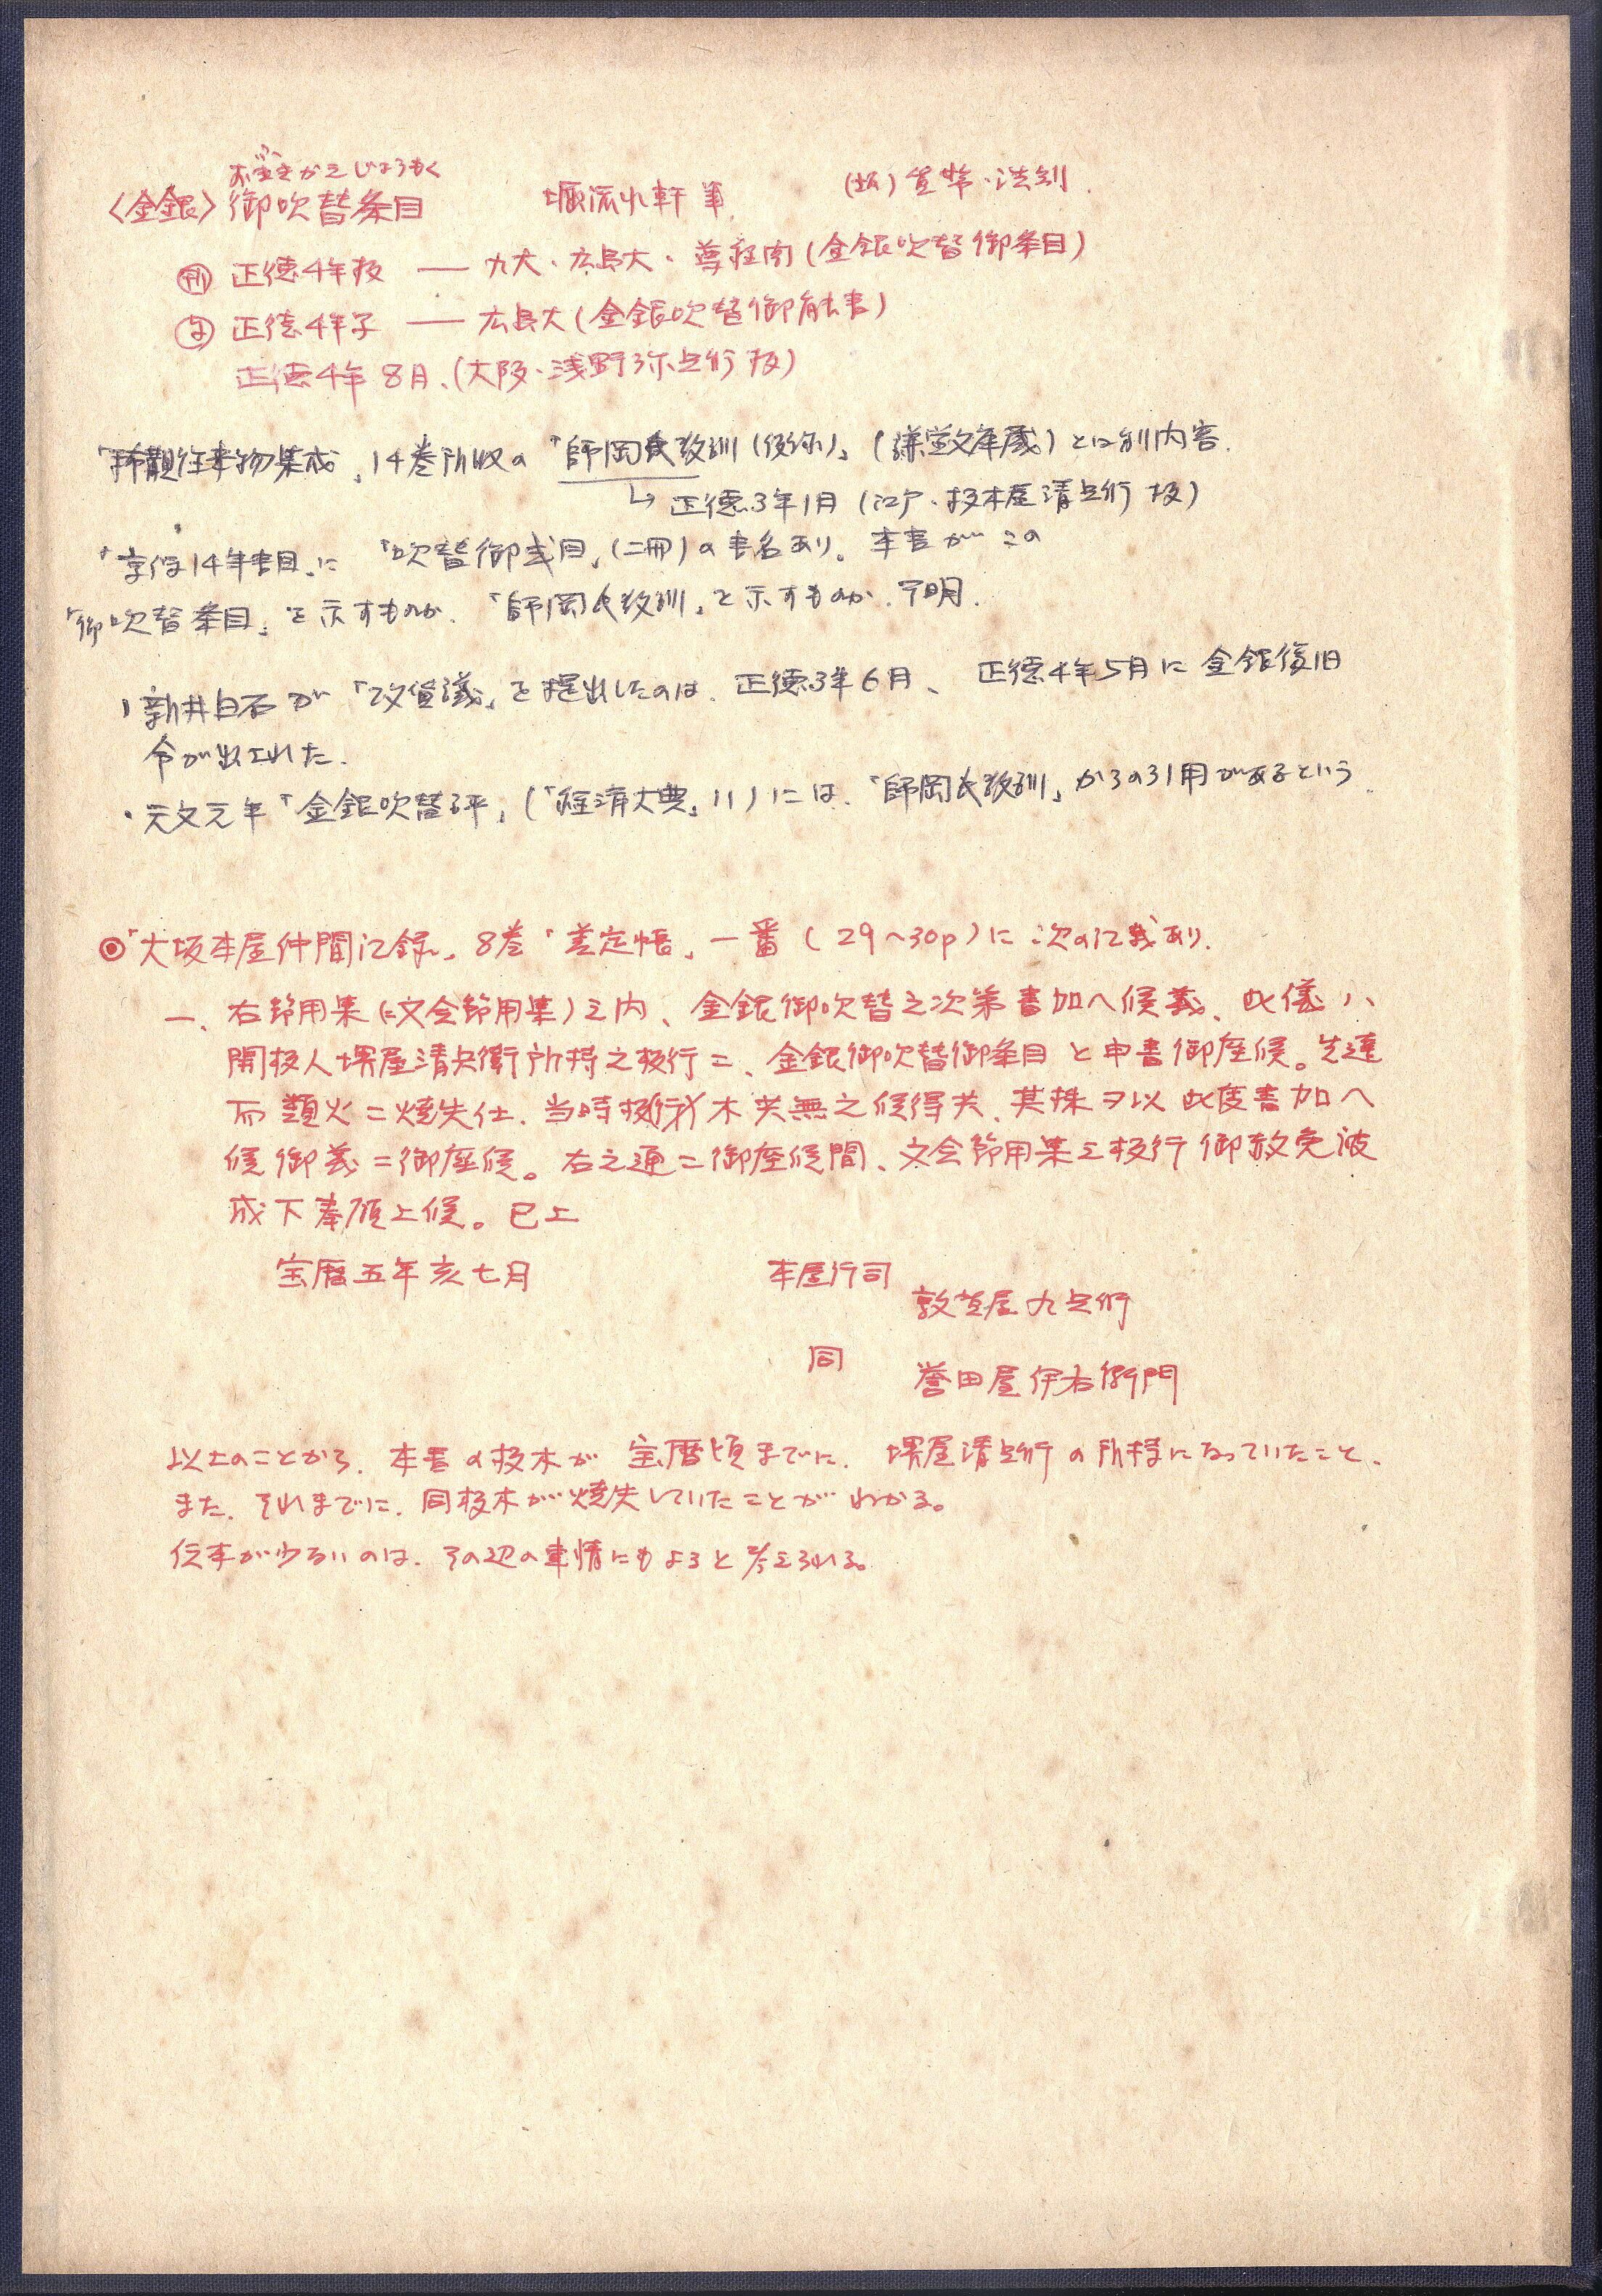 おふきかえじょうもく
〈金銀〉御吹替条目　堀流水軒 筆　(類) 貨幣・法制
㊞ 正徳4年板 ── 九大・広島大・尊経閣(金銀吹替御条目)
正徳4年写 ── 広島大(金銀吹替御触書)
正徳4年8月、(大阪・浅野弥兵衛 板)
「稀覯往来物集成」14巻所収の「師岡氏教訓(仮称)」(謙堂文庫蔵)とは別内容.
↳ 正徳3年1月 (江戸・板木屋清兵衛 板)
「享保14年書目」に「吹替御式目」(二冊)の書名あり。本書がこの
「御吹替条目」を示すものか、「師岡氏教訓」を示すものか、不明.
・新井白石が「改貨議」を提出したのは、正徳3年6月、正徳4年5月に金銀復旧
令が出された.
・元文元年「金銀吹替評」(「経済大典」11)には、「師岡氏教訓」からの引用があるという
◉「大坂本屋仲間記録」8巻「差定帳」一番 (29〜30p)に次の記載あり.
一、右節用集(=文会節用集)之内、金銀御吹替之次第書加へ候義、此儀ハ、
開板人堺屋清兵衛所持之板行ニ、金銀御吹替御条目と申書御座候。先達
而類火ニ焼失仕、当時板行木共無之候得共、其株ヲ以此度書加へ
候御義ニ御座候。右之通ニ御座候間、文会節用集之板行御赦免被
成下奉願上候。已上
宝暦五年亥七月　本屋行司
敦賀屋九兵衛
同　誉田屋伊右衛門
以上のことから、本書の板木が宝暦頃までに、堺屋清兵衛の所持になっていたこと、
また、それまでに、同板木が焼失していたことがわかる。
伝本が少ないのは、その辺の事情にもよると考えられる。